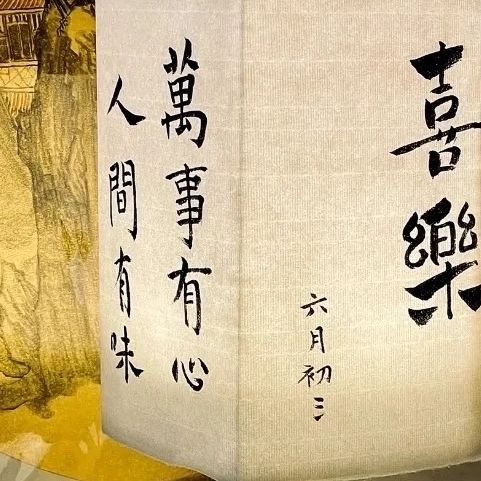 喜樂
六月初三
萬事有心
人間有味